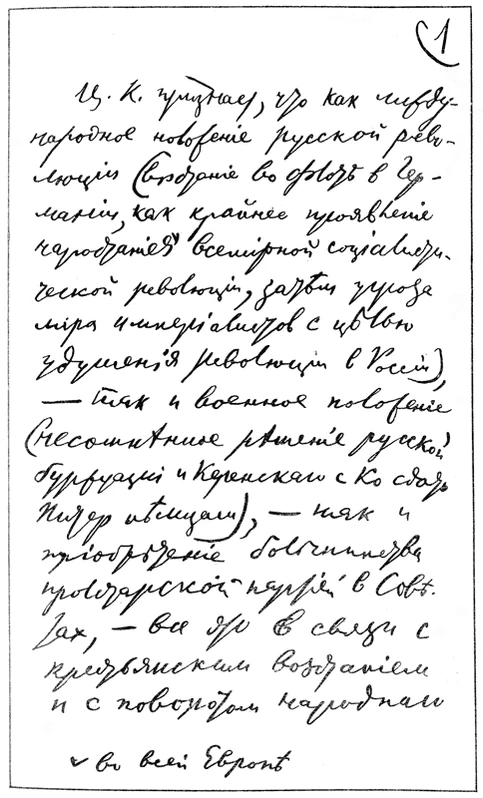 1
Ц. К. признает, что как между-
народное положение русской рево-
люціи (возстаніе во флотѣ в Гер-
маніи, как крайнее проявленіе
нарастанія ѵ всемірной соціалисти-
ческой революціи, затѣм угроза
мира имперіалистов с цѣлью
удушенія революціи в Россіи),
— так и военное положеніе
(несомнѣнное рѣшеніе русской
буржуазіи и Керенскаго с Ко сдать
Питер нѣмцам), — так и
пріобрѣтеніе большинства
пролетарской партіей в Совѣ-
тах, — все это в связи с
крестьянским возстаніем
и с поворотом народнаго
ѵ во всей Европѣ